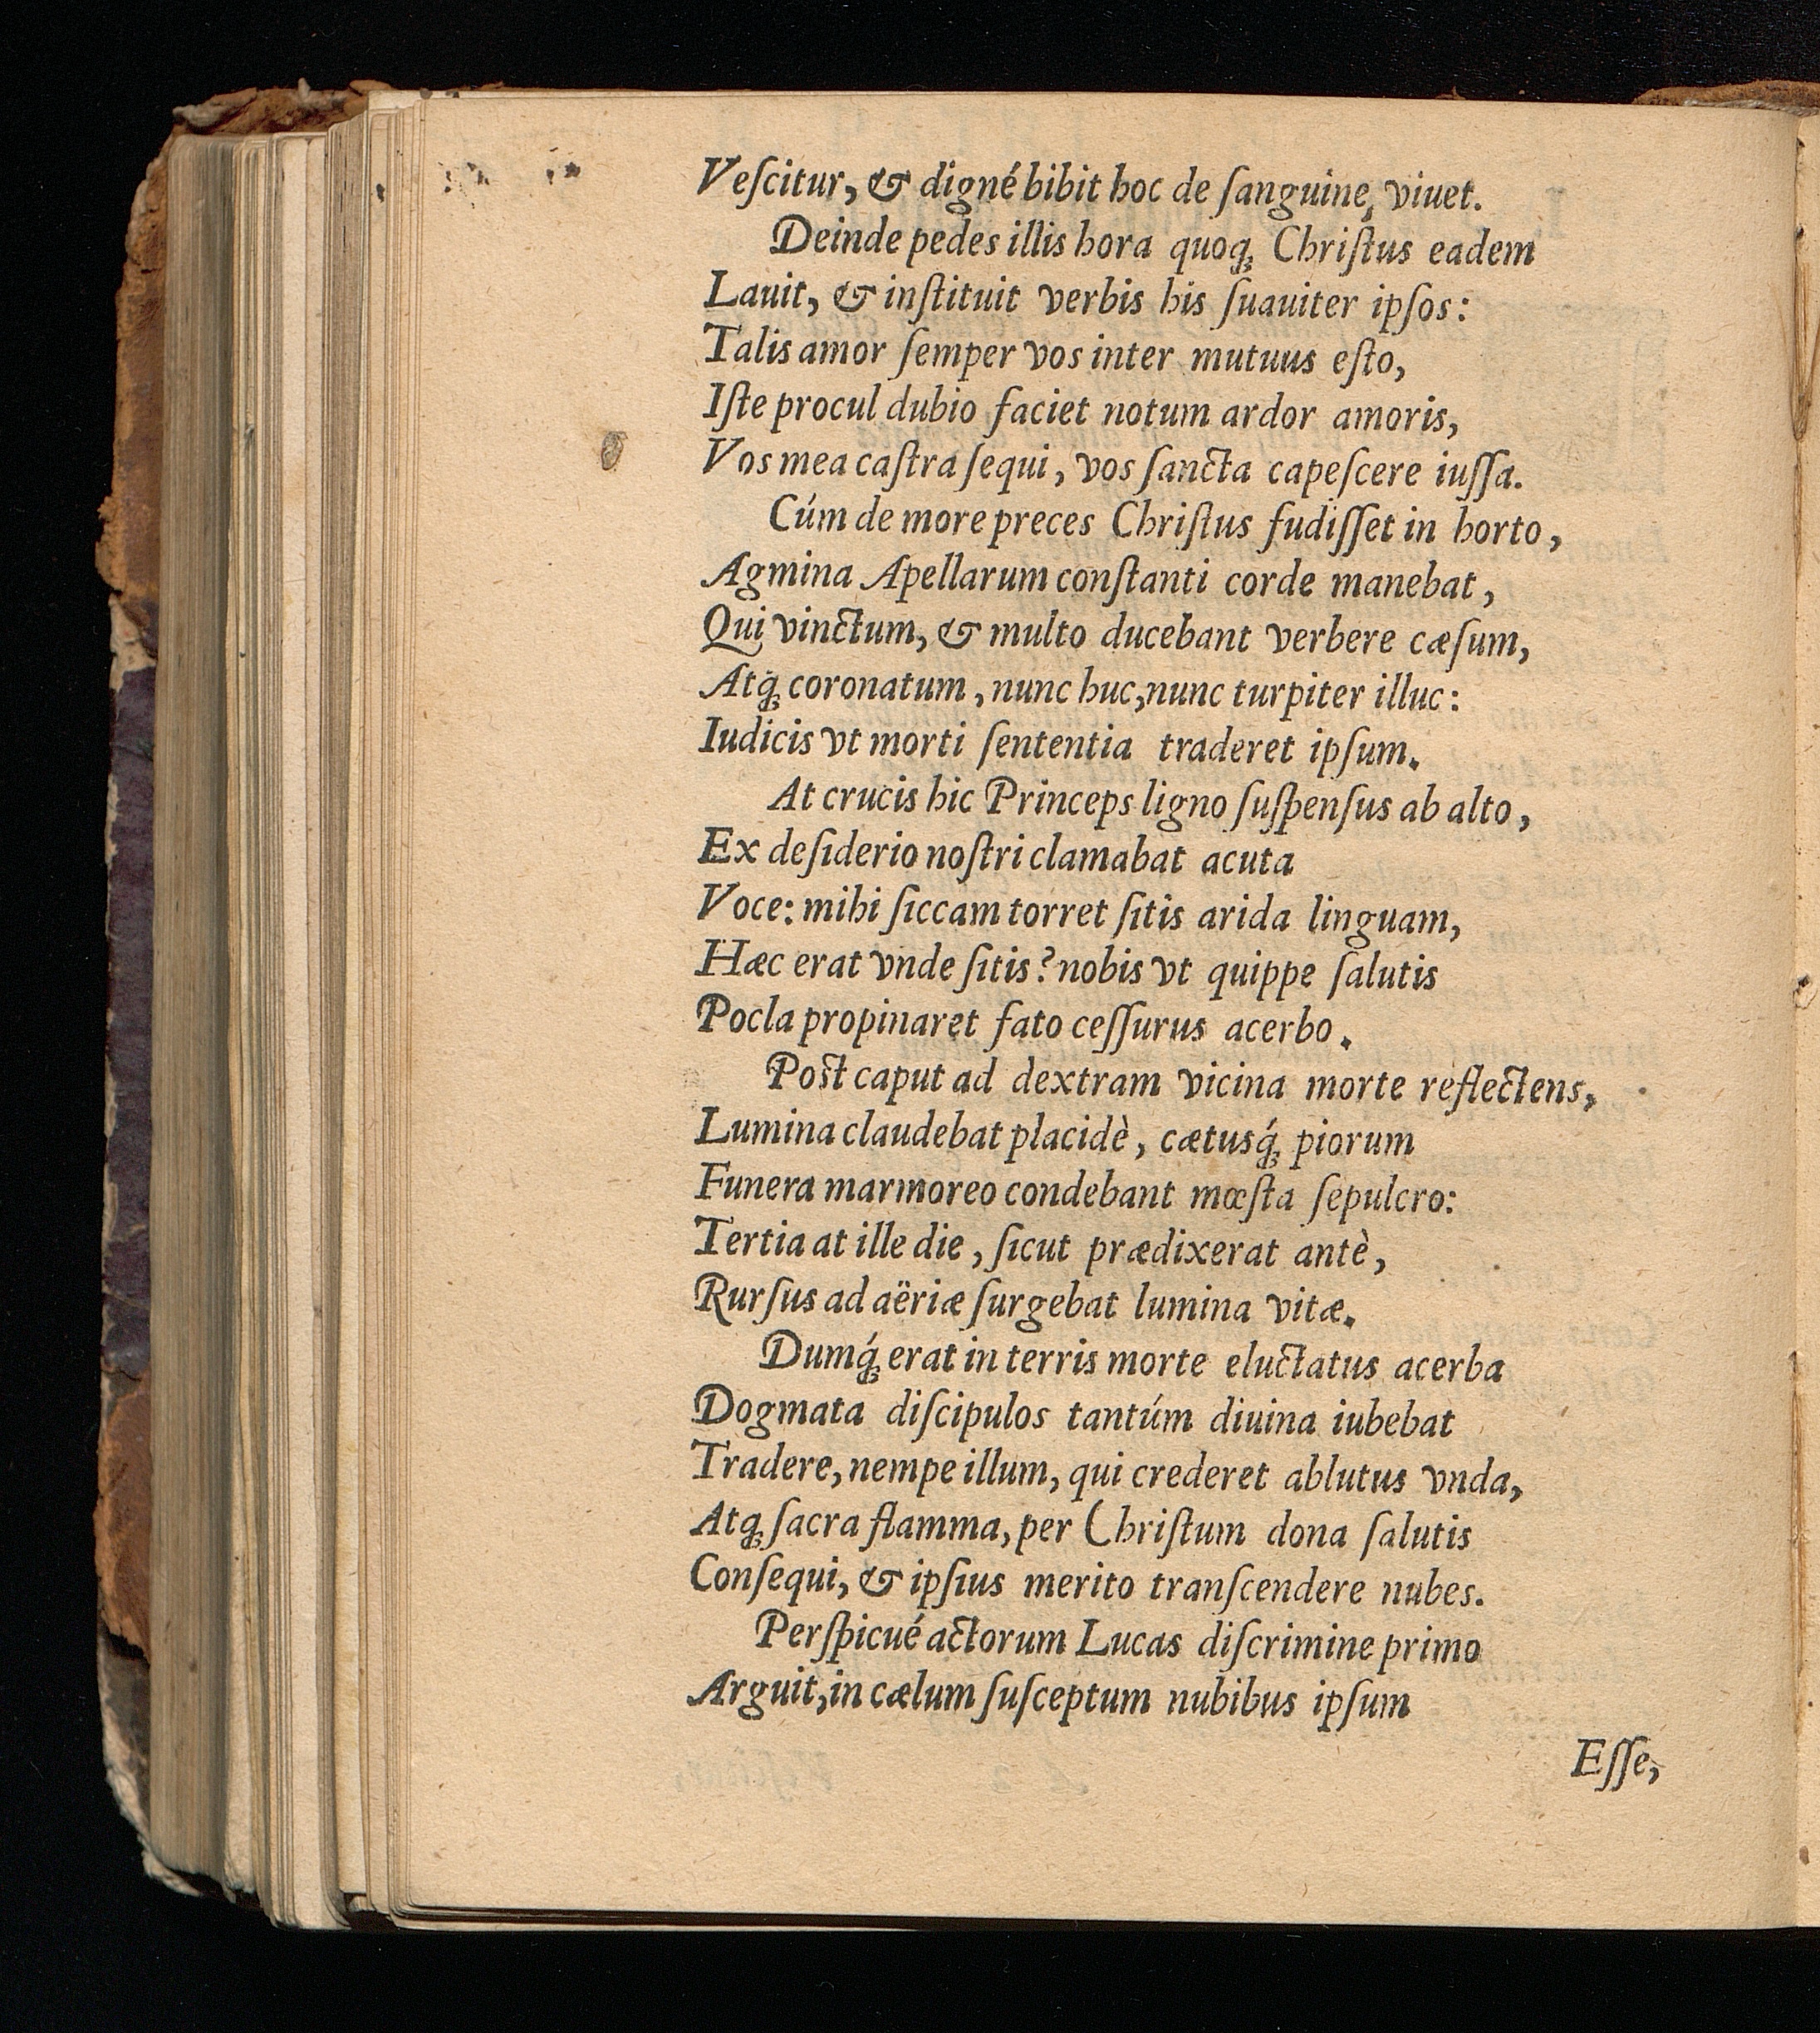 Veſcitur, & digné bibit hoc de ſanguine, viuet.
Deinde pedes illis hora quoq; Chriſtus eadem
Lauit, & inſtituit verbis his ſuauiter ipſos:
Talis amor ſemper vos inter mutuus eſto,
Iſte procul dubio faciet notum ardor amoris,
Vos mea caſtra ſequi, vos ſancta capeſcere iuſſa.
Cúm de more preces Chriſtus fudiſſet in horto,
Agmina Apellarum conſtanti corde manebat,
Qui vinctum, & multo ducebant verbere cæſum,
Atq; coronatum, nunc huc, nunc turpiter illuc:
Iudicis vt morti ſententia traderet ipſum.
At crucis hic Princeps ligno ſuſpenſus ab alto,
Ex deſiderio noſtri clamabat acuta
Voce: mihi ſiccam torret ſitis arida linguam,
Hæc erat vnde ſitis? nobis vt quippe ſalutis
Pocla propinaret fato ceſſurus acerbo.
Poſt caput ad dextram vicina morte reflectens,
Lumina claudebat placidè, cætusq́; piorum
Funera marmoreo condebant mœſta ſepulcro:
Tertia at ille die, ſicut prædixerat antè,
Rurſus ad aëriæ ſurgebat lumina vitæ.
Dumq́; erat in terris morte eluctatus acerba
Dogmata diſcipulos tantúm diuina iubebat
Tradere, nempe illum, qui crederet ablutus vnda,
Atq; ſacra flamma, per Chriſtum dona ſalutis
Conſequi, & ipſius merito tranſcendere nubes.
Perſpicué actorum Lucas diſcrimine primo
Arguit, in cælum ſuſceptum nubibus ipſum
Eſſe,